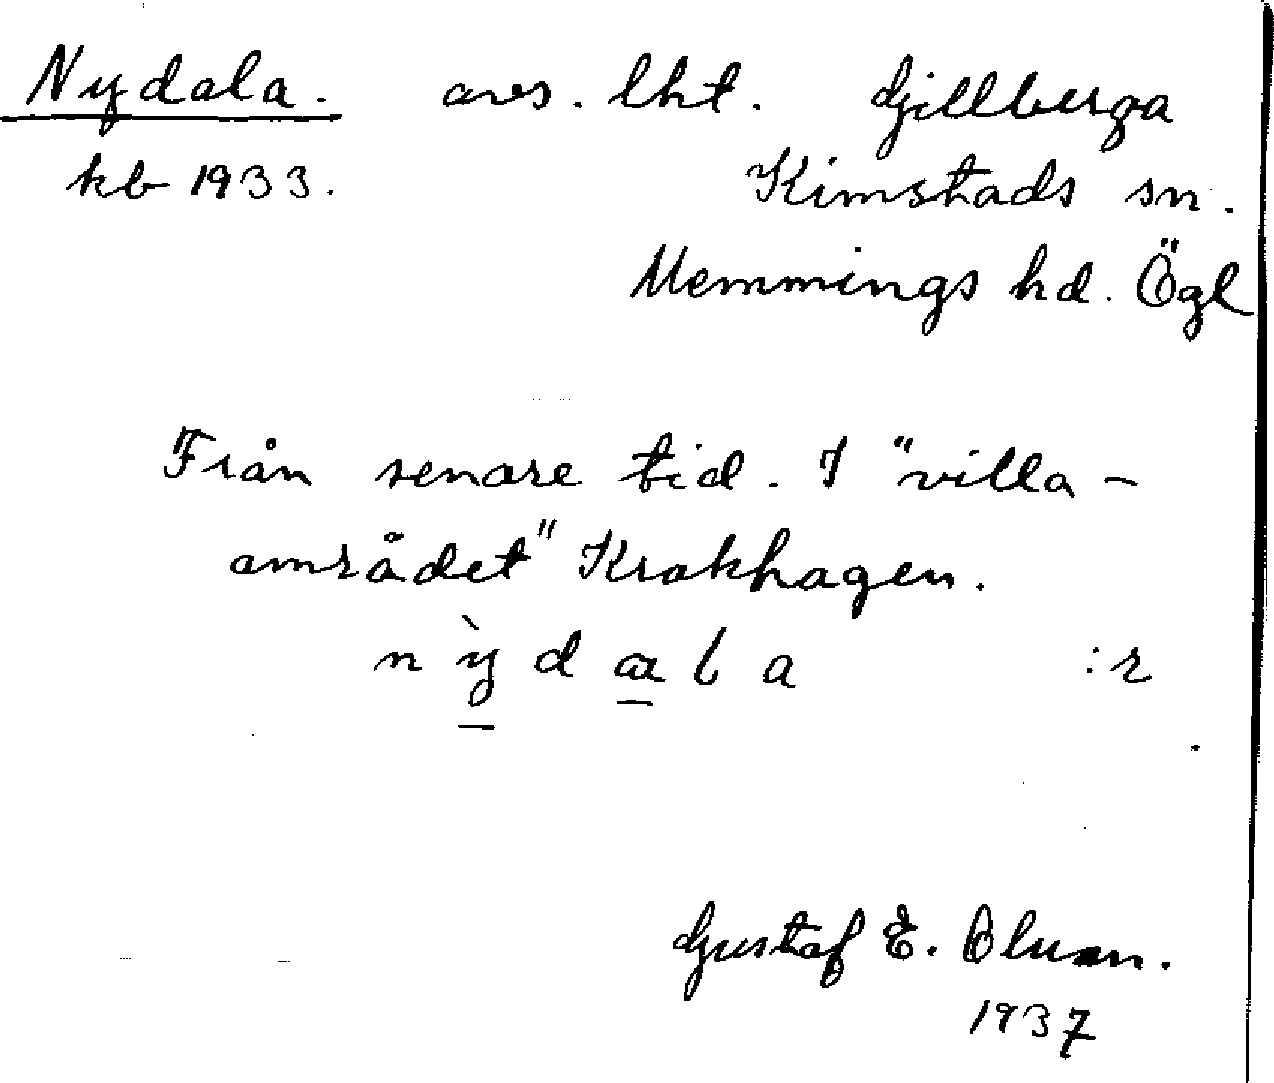 Nydala. avs. lht. Gillberga
kb 1933. Kimstads sn.
Memmings hd. Ögl
Från senare tid. I "villa-
området" Krokhagen.
n ỳ d a l a :r
Gustaf E. Oluan.
1937